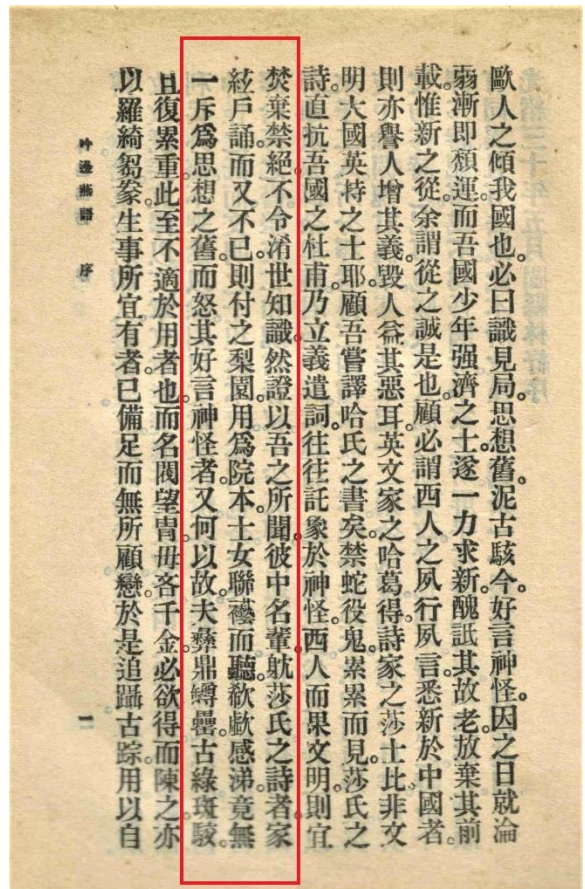 歐人之傾我國也。必曰識見局。思想舊。泥古駭今。好言神怪。因之日就淪
弱。漸即頹運。而吾國少年强濟之士。遂一力求新。醜詆其故老。放棄其前
載。惟新之從。余謂從之誠是也。顧必謂西人之夙行夙言。悉新於中國者。
則亦譽人增其義。毀人益其惡耳。英文家之哈葛得。詩家之莎士比。非文
明大國英特之士耶。顧吾嘗譯哈氏之書矣。禁蛇役鬼。累累而見。莎氏之
詩。直抗吾國之杜甫。乃立義遣詞。往往託象於神怪。西人而果文明。則宜
焚棄禁絕。不令淆世知識。然證以吾之所聞。彼中名輩。躭莎氏之詩者。家
絃戶誦。而又不已。則付之梨園。用爲院本。士女聯襼而聽。欷歔感涕。竟無
一斥爲思想之舊。而怒其好言神怪者。又何以故。夫彝鼎罇罍。古綠斑駁。
且復累重。此至不適於用者也。而名閥望胄。毋吝千金。必欲得而陳之。亦
以羅綺芻豢。生事所宜有者。已備足而無所顧戀。於是追躡古踪。用以自
吟邊燕語　序